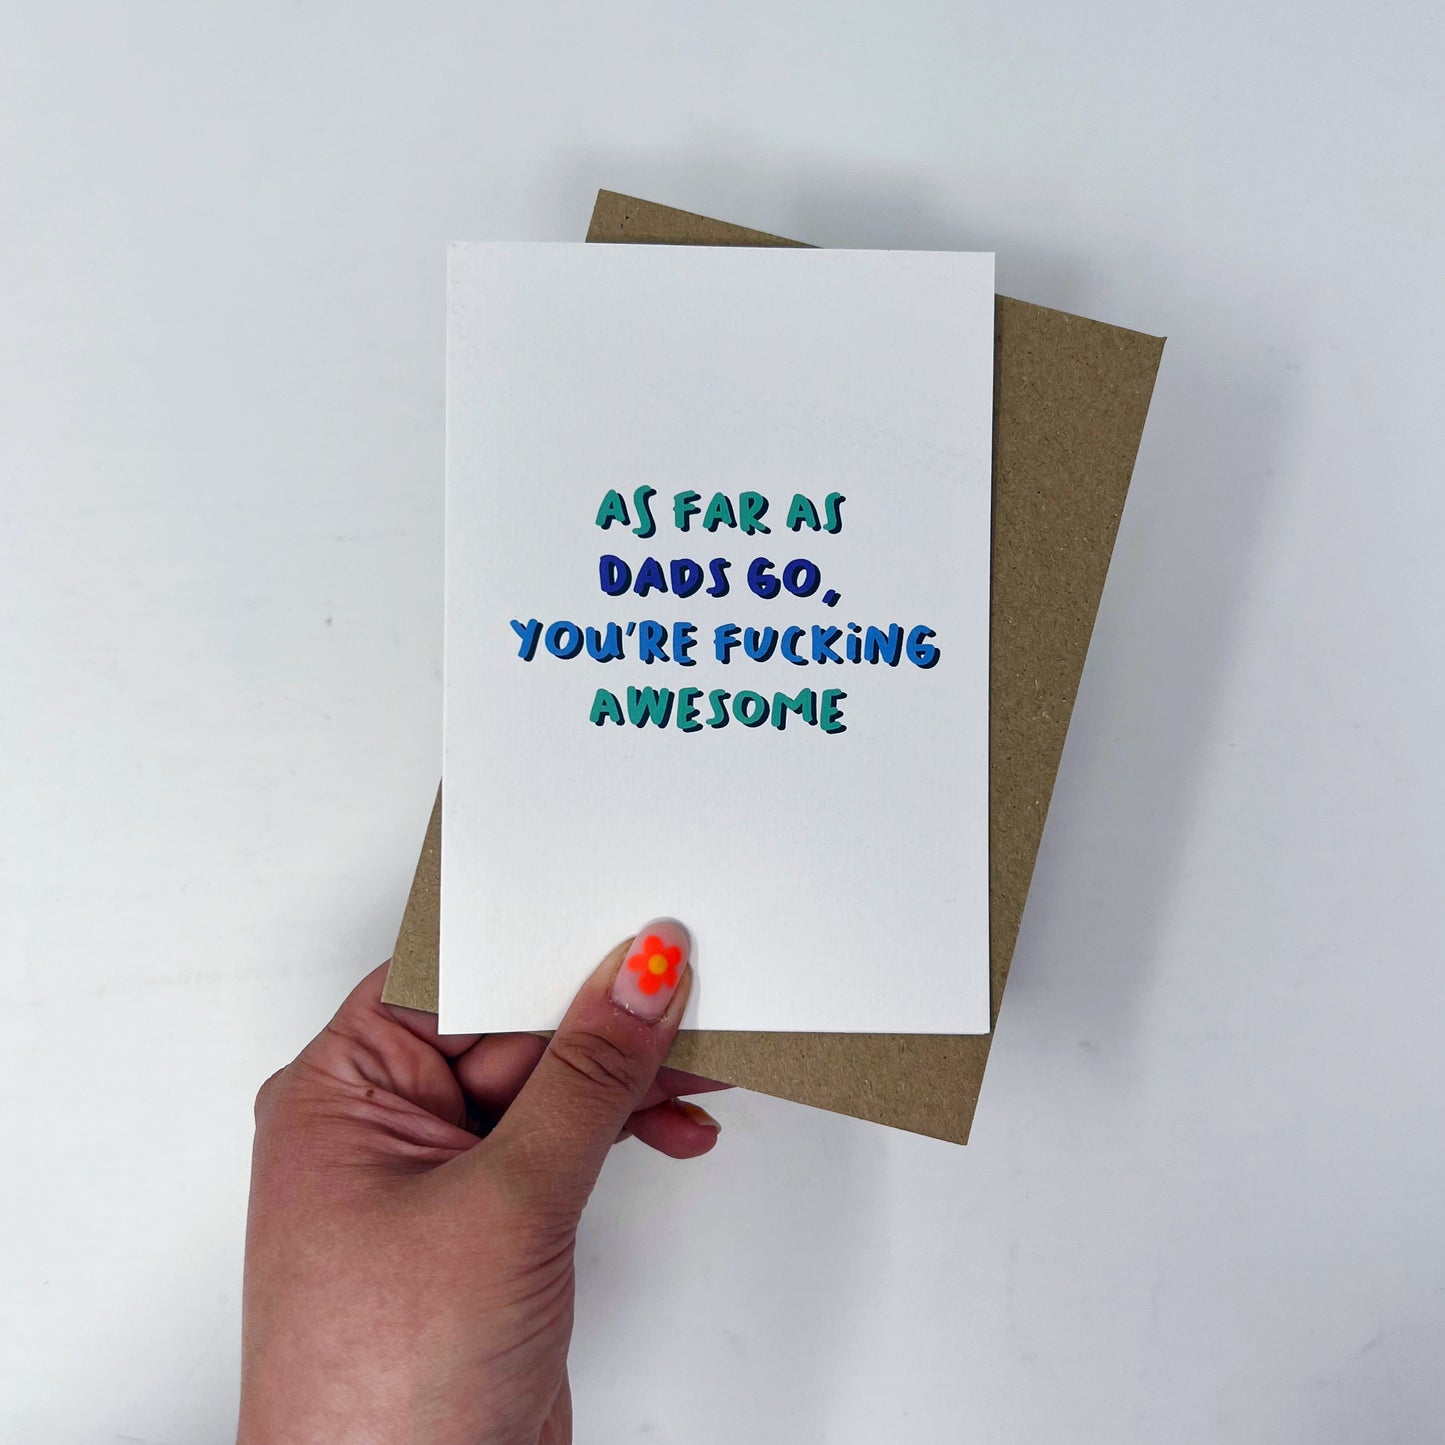 AS FAR AS
DADS GO,
YOU'RE FUCKiNG
AWESOME